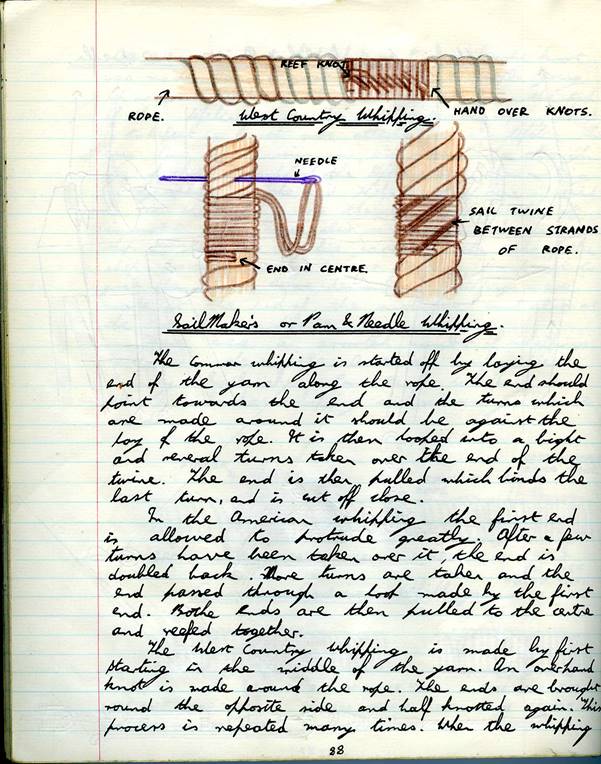 REEF KNOT
ROPE.
HAND OVER KNOTS.
West Country Whipping.
NEEDLE
SAIL TWINE
BETWEEN STRANDS
OF ROPE.
END IN CENTRE.
SailMaker's or Pam & Needle Whipping.
The Common whipping is started off by laying the
end of the yarn along the rope. The end should
point towards the end and the turns which
are made around it should be against the
lay of the rope. It is then looped into a bight
and several turns taken over the end of the
twine. The end is then pulled which binds the
last turn, and is cut off close.
In the American whipping the first end
is allowed to protrude greatly. After a few
turns have been taken over it the end is
doubled back. More turns are taken and the
end passed through a loop made by the first
end. Bothe ends are then pulled to the centre
and reefed together.
The West Country Whipping is made by first
starting in the middle of the yarn. An overhand
knot is made around the rope. The ends are brought
round the opposite side and half knotted again. This
process is repeated many times. When the whipping
88